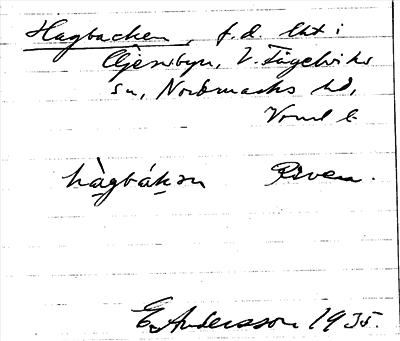 Hagbacken, f.d. lht i
Öjersbyn, V. Fågelviks
sn, Nordmarks hd,
Värml l.
hàgbákən
E. Andersson 1935.